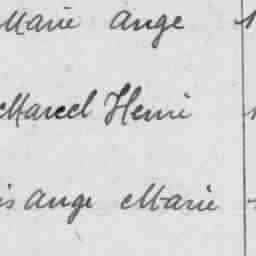 Marie Ange
Marcel Henri
is Ange Marie